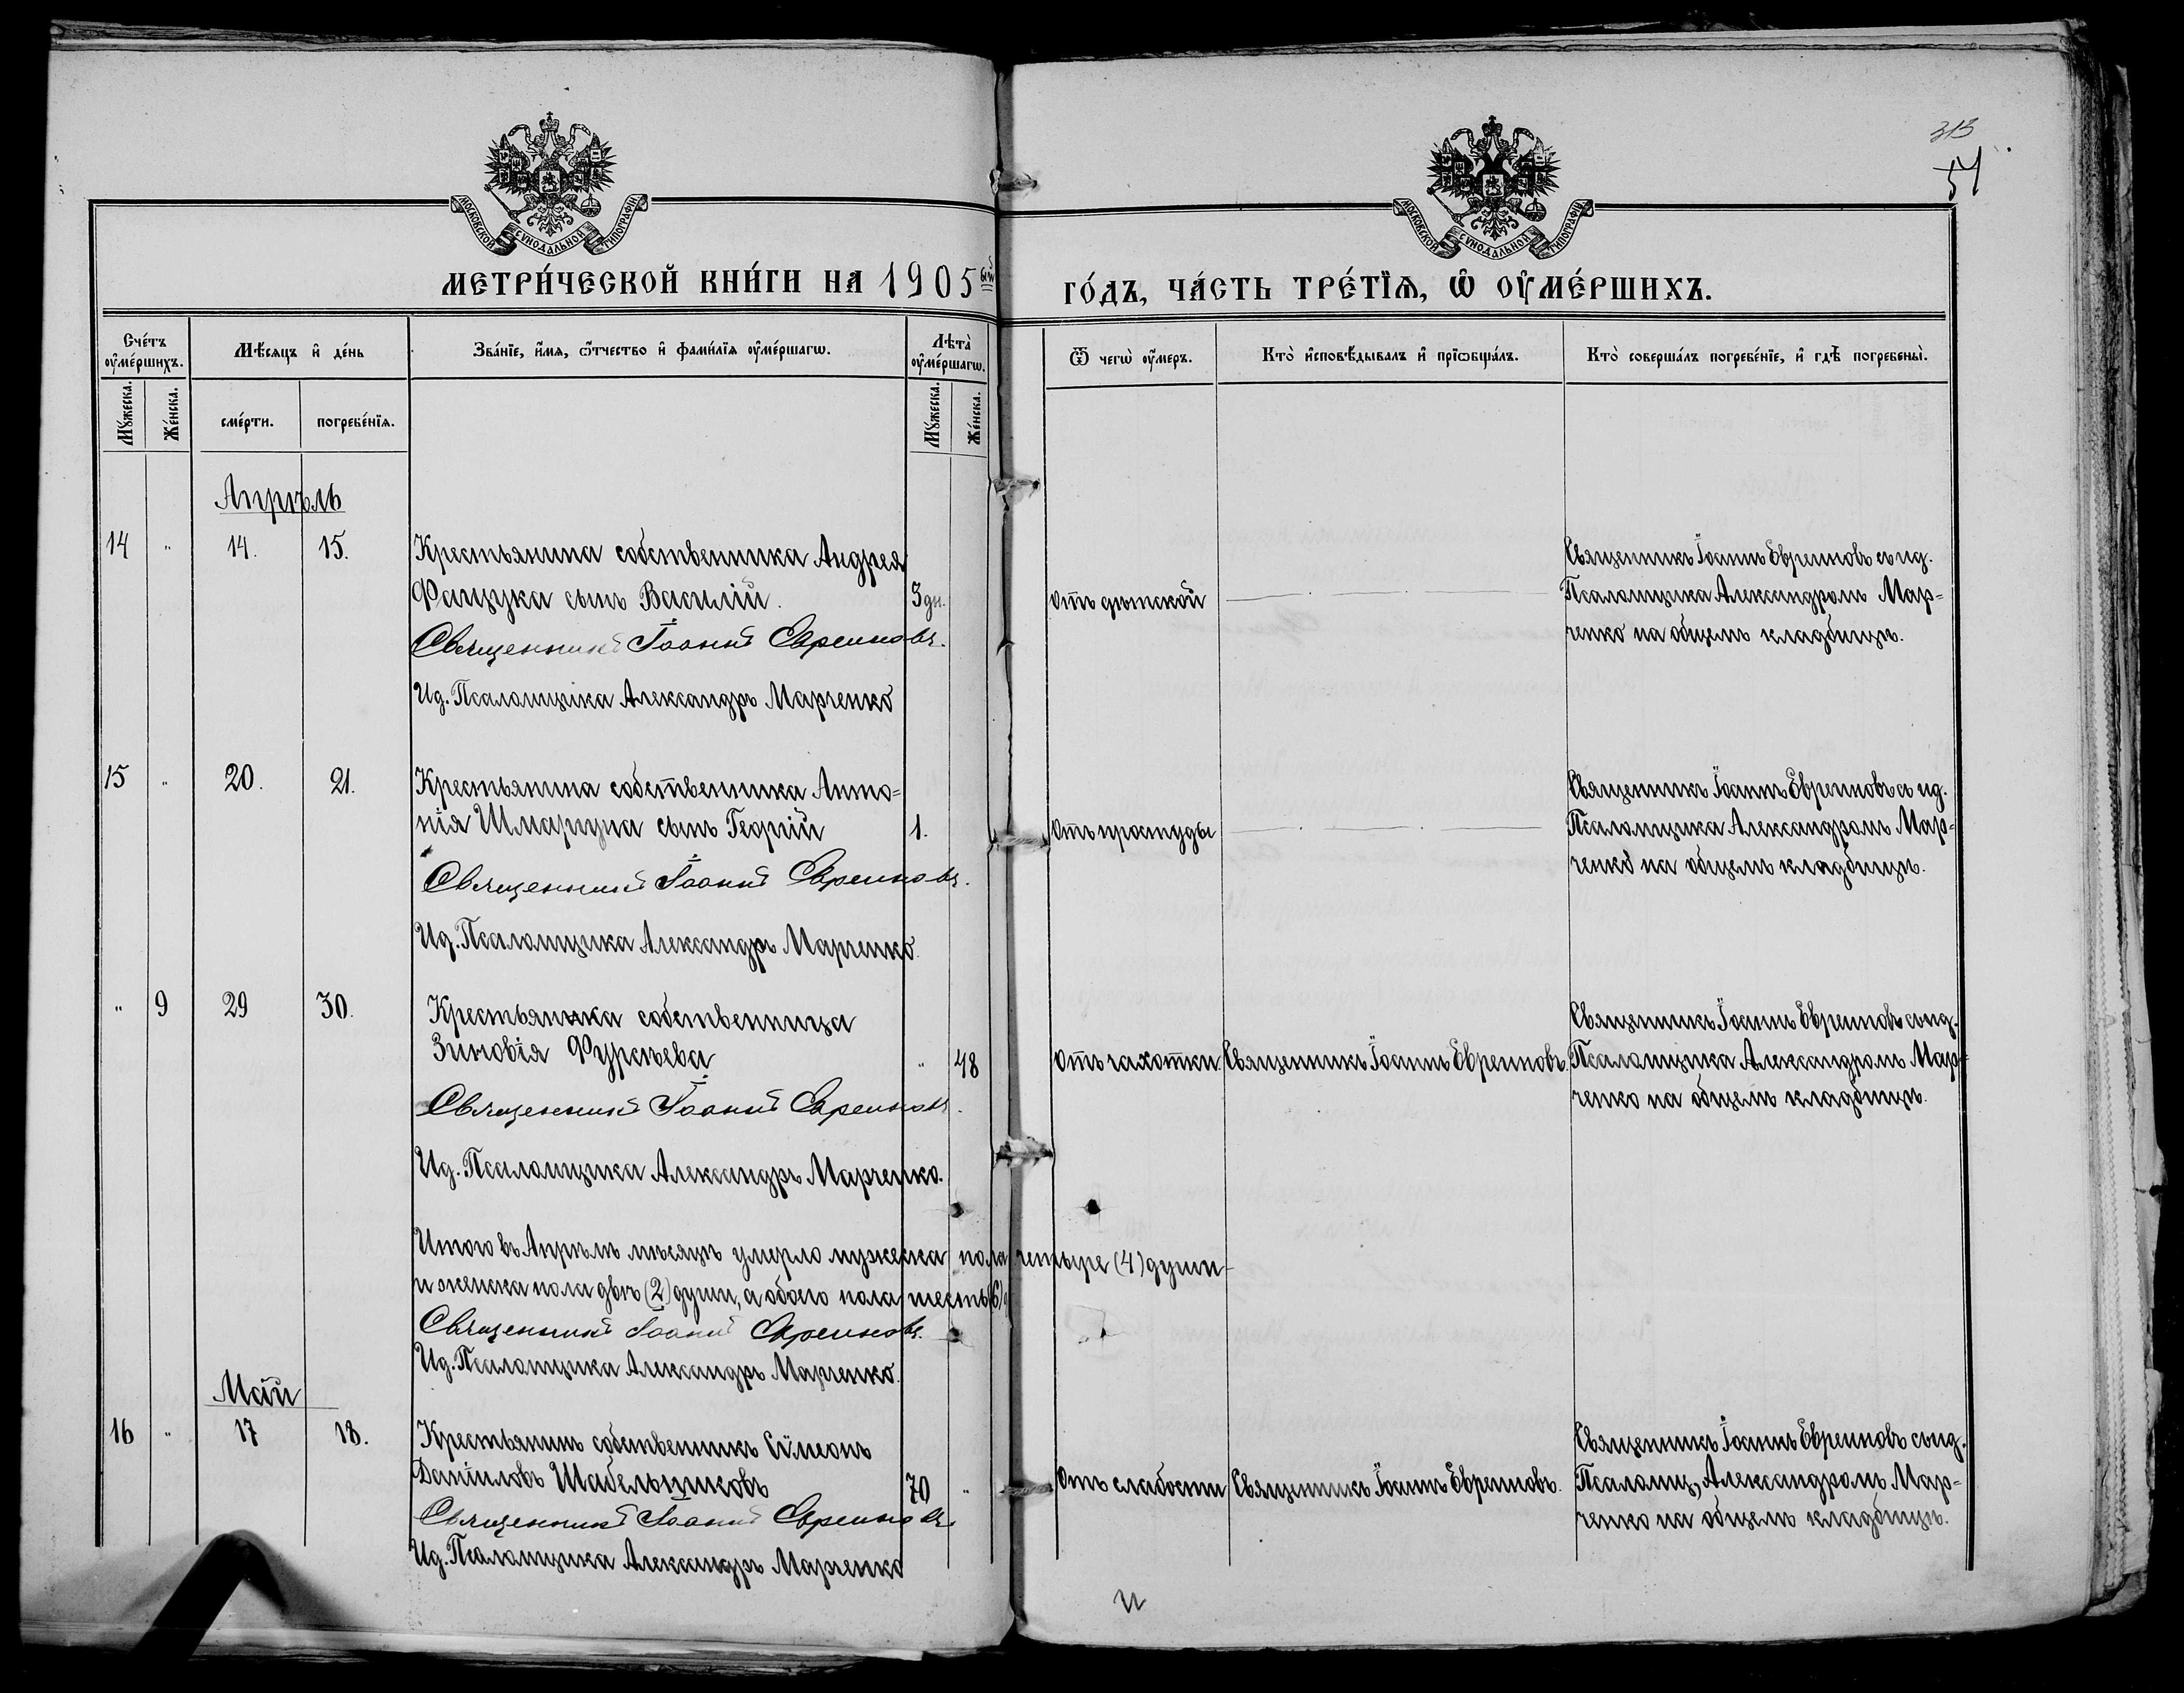 313
51
МОСКОВСКОЙ СѴНОДАЛЬНОЙ ТИПОГРАФІИ
МОСКОВСКОЙ СѴНОДАЛЬНОЙ ТИПОГРАФІИ
МЕТРИ́ЧЕСКОЙ КНИ́ГИ НА 1905ый
ГО́ДЪ, ЧА́СТЬ ТРЕ́ТІѦ, Ѡ҆ ОУ҆МЕ́РШИХЪ.
Сче́тъ оу҆ме́ршихъ.
Мѣ́сяцъ и҆ де́нь
Зва́нїе, и҆́мя, ѻ҆́тчество и҆ фами́лїя оу҆ме́ршагѡ.
Лѣ́та оу҆ме́ршагѡ.
Ѿ чегѡ̀ оу҆́меръ.
Кто̀ и҆сповѣ́дывалъ и҆ прїѡбща́лъ.
Кто̀ соверша́лъ погребе́нїе, и҆ гдѣ̀ погребены̀.
Му́жеска.
Же́нска.
сме́рти.
погребе́нїя.
Му́жеска.
Же́нска.
Апрѣль
14 " 14. 15. Крестьянина собственника Андрея
сынъ Василій. 3 дн.
Священникъ Іоаннъ Евреиновъ.
Ид. Псаломщика Александръ Марченко
отъ дѣтской
Священникъ Іоаннъ Евреиновъ съ ид.
Псаломщика Александромъ Мар=
ченко на общемъ кладбищѣ.
15 " 20. 21. Крестьянина собственника Анто=
нія сынъ Георгій 1.
Священникъ Іоаннъ Евреиновъ.
Ид. Псаломщика Александръ Марченко.
Отъ простуды
Священникъ Іоаннъ Евреиновъ съ ид.
Псаломщика Александромъ Мар=
ченко на общемъ кладбищѣ.
" 9 29 30. Крестьянка собственница
Зиновія " 48
Священникъ Іоаннъ Евреиновъ.
Ид. Псаломщика Александръ Марченко.
Отъ чахотки. Священникъ Іоаннъ Евреиновъ.
Священникъ Іоаннъ Евреиновъ съ ид.
Псаломщика Александромъ Мар=
ченко на общемъ кладбищѣ.
Итого въ Апрѣлѣ мѣсяцѣ умерло мужеска пола четыре (4) души
и женска пола двѣ (2) души, а обоего пола шесть (6)
Священникъ Іоаннъ Евреиновъ.
Ид. Псаломщика Александръ Марченко.
Май
16 " 17 18. Крестьянинъ собственникъ Сѵмеонъ
Даніиловъ Шабельниковъ 70 "
Священникъ Іоаннъ Евреиновъ.
Ид. Псаломщика Александръ Марченко
Отъ слабости Священникъ Іоаннъ Евреиновъ.
Священникъ Іоаннъ Евреиновъ съ ид.
Псаломщ. Александромъ Мар=
ченко на общемъ кладбищѣ.